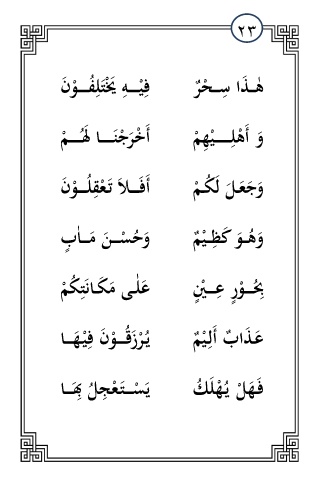 ٢٣
هٰذَا سِحْرٌ فِيْهِ يَخْتَلِفُوْنَ
وَ أَهْلِيْهِمْ أَخْرَجْنَا لَهُمْ
وَجَعَلَ لَكُمْ أَفَلَا تَعْقِلُوْنَ
وَهُوَ كَظِيْمٌ وَحُسْنَ مَاٰبٍ
بِحُوْرٍ عِيْنٍ عَلٰى مَكَانَتِكُمْ
عَذَابٌ أَلِيْمٌ يُرْزَقُوْنَ فِيْهَا
فَهَلْ يُهْلَكُ يَسْتَعْجِلُ بِهَا